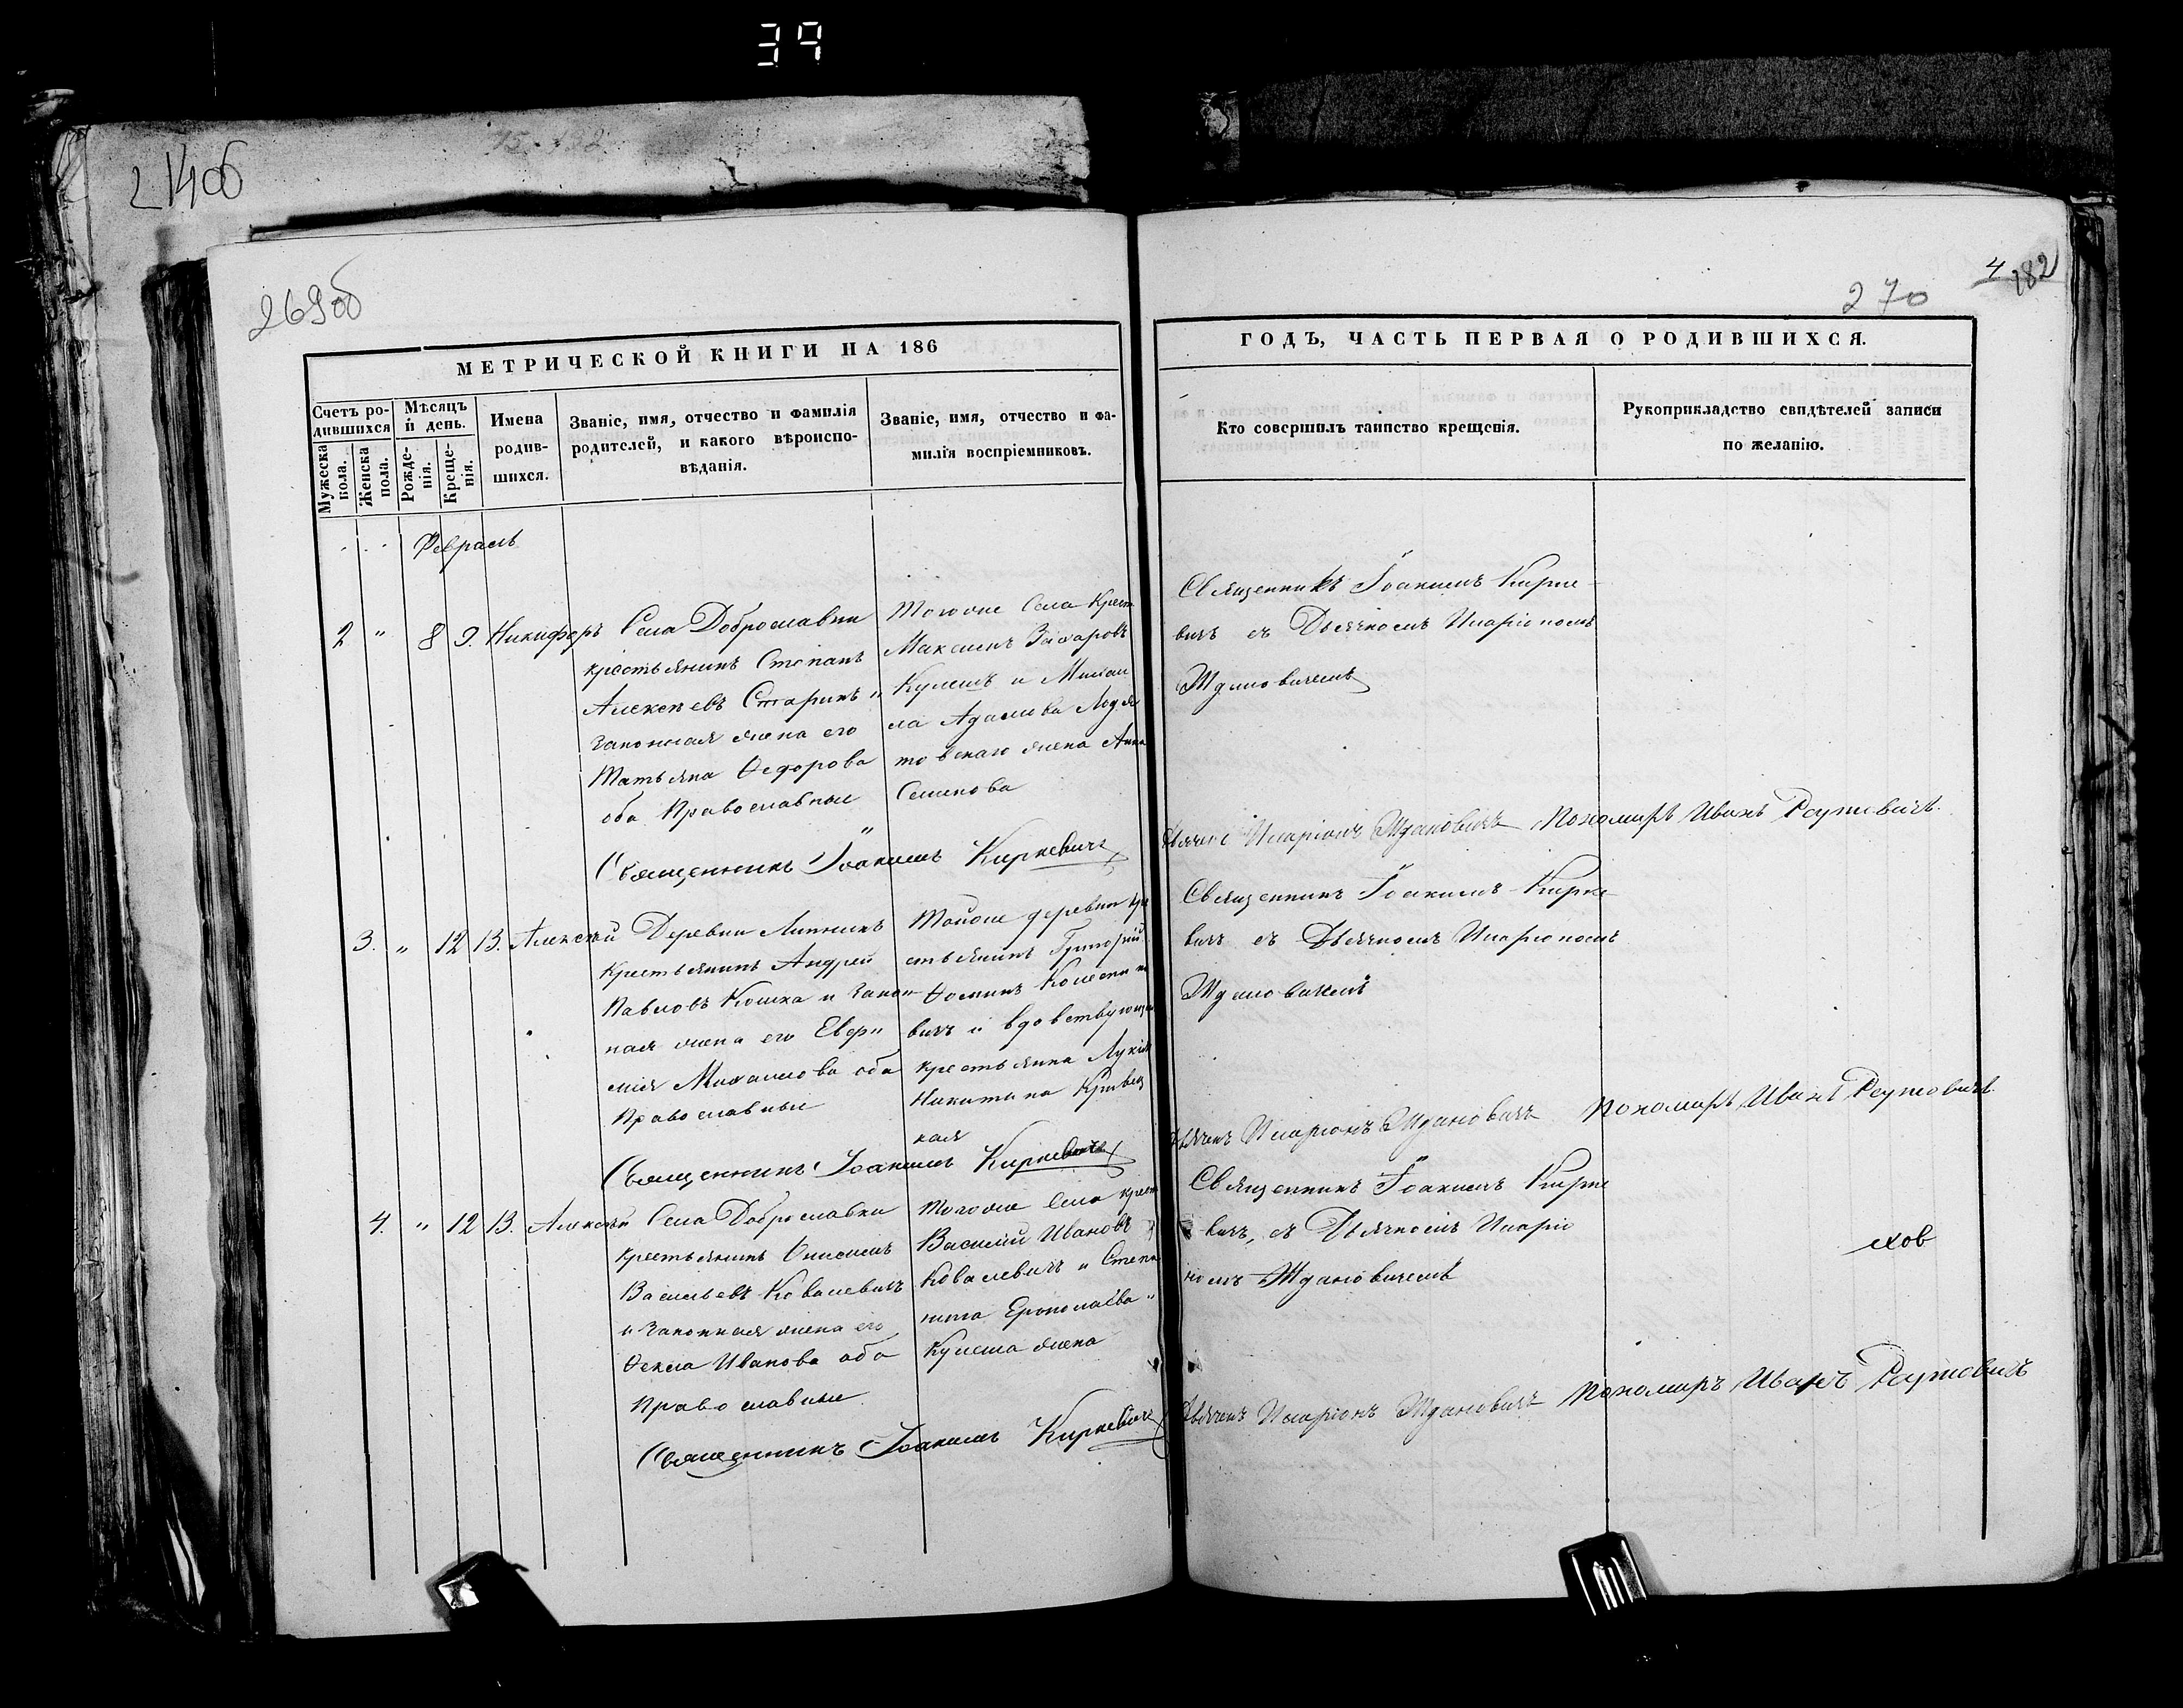 39
21406
269об
270
4
182
МЕТРИЧЕСКОЙ КНИГИ НА 186
ГОДЪ, ЧАСТЬ ПЕРВАЯ О РОДИВШИХСЯ.
Счетъ ро-
дившихся
Мужеска
пола.
Женска
пола.
Мѣсяцъ
и день.
Рожде-
нія.
Креще-
нія.
Имена
родив-
шихся.
Званіе, имя, отчество и фамилія
родителей, и какого вѣроиспо-
вѣданія.
Званіе, имя, отчество и фа-
милія воспріемниковъ.
Кто совершилъ таинство крещенія.
Рукоприкладство свидѣтелей записи
по желанію.
Февраль
2 " 8 9. Никифоръ
Села Доброславки
крестьянинъ Стопанъ
Алексѣевъ Старикъ и
законная жена его
Татьяна Ѳедорова
оба Православные
Тогоже Села Крест
Максимъ Захаровъ
Кулешъ и Михаи
ла Адамова
товскаго жена Анна
Семенова
Священникъ Іоакимъ Кирке
вичъ съ Дьячкомъ Иларіономъ
Ждановичемъ
Священникъ Іоакимъ Киркевичъ
Дьячекъ Иларіонъ Ждановичъ Пономарь Иванъ Реутовичъ.
3. " 12 13. Алексѣй
Деревни Липникъ
Крестьянинъ Андрей
Павловъ Кошка и закон
ная жена его Евфи
мія Михаилова оба
Православные
Тойже деревни кре
стьянинъ Григорій
Ѳоминъ
вичъ и вдовствующая
крестьянка Лукія
Никитина Кривец
кая
Священникъ Іоакимъ Кирке
вичъ съ Дьячкомъ Иларіономъ
Ждановичемъ
Священникъ Іоакимъ Киркевичъ
Дьячекъ Иларіонъ Ждановичъ Пономарь Иванъ Реутовичъ.
4. " 12 13. Алексѣй
Села Доброславки
крестьянинъ Онисимъ
Васильевъ Ковалевичъ
и Законная жена его
Ѳекла Иванова оба
Православные
Тогоже Села крест
Василій Ивановъ
Ковалевичъ и Степа
нида Ермолаева
Кулеша жена
Священникъ Іоакимъ Кирке
вичъ, съ Дьячкомъ Иларіо
номъ Ждановичемъ
Священникъ Іоакимъ Киркевичъ
Дьячекъ Иларіонъ Ждановичъ Пономарь Иванъ Реутовичъ